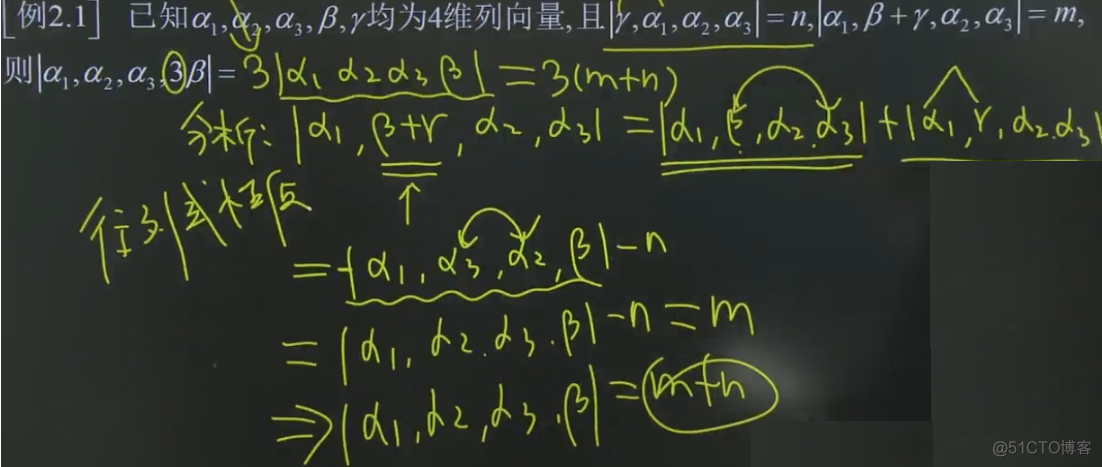 [例2.1] 已知α₁,α₂,α₃,β,γ均为4维列向量,且|γ,α₁,α₂,α₃|=n,|α₁,β+γ,α₂,α₃|=m,
则|α₁,α₂,α₃,3β|= 3|α₁ α₂ α₃ β| = 3(m+n)
分析: |α₁, β+γ, α₂, α₃| = |α₁, β, α₂.α₃| + |α₁, γ, α₂.α₃|
行列式
= -|α₁, α₃, α₂, β| - n
= |α₁, α₂. α₃. β| - n = m
⇒ |α₁, α₂, α₃. β| = m+n
@51CTO博客